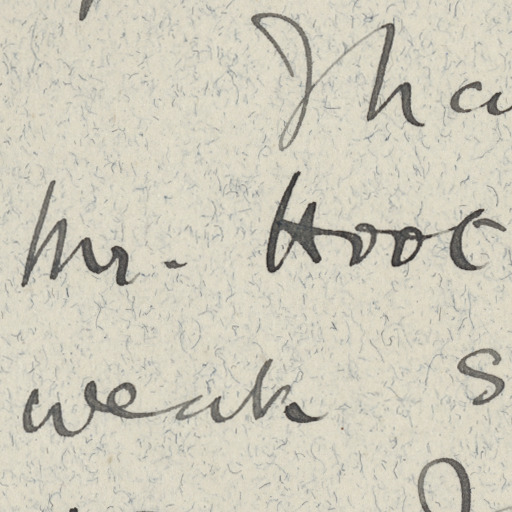 Tha
Mr. Hooc
weak s